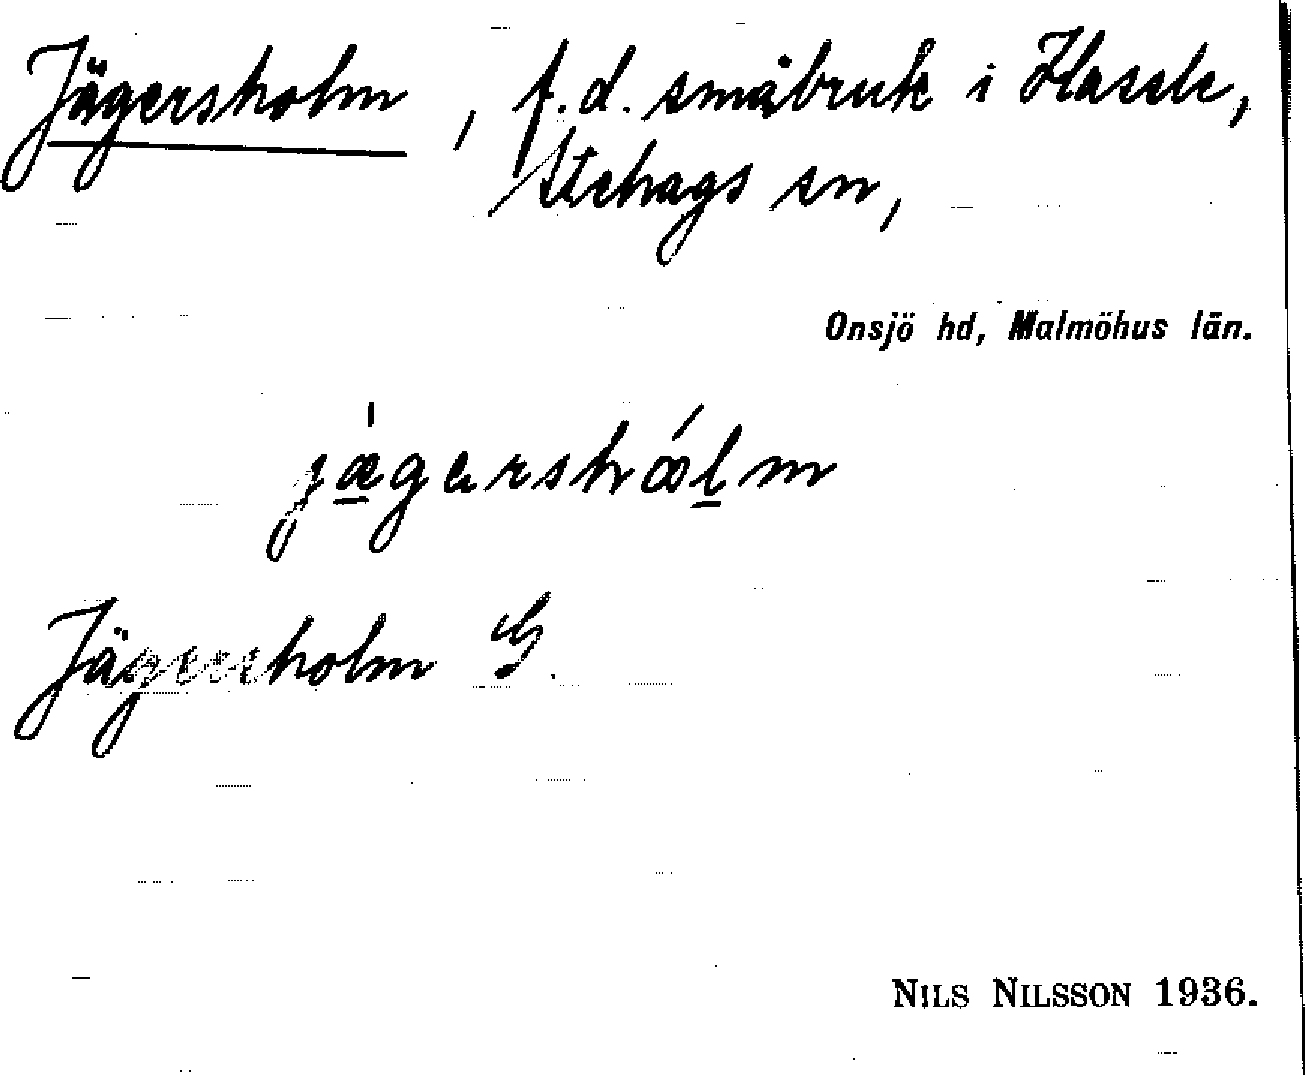 Jägersholm, f.d. småbruk i Hassle,
Stehags sn,
Onsjö hd, Malmöhus län.
jæ̱gərshóḻm
Jägersholm G.
NILS NILSSON 1936.